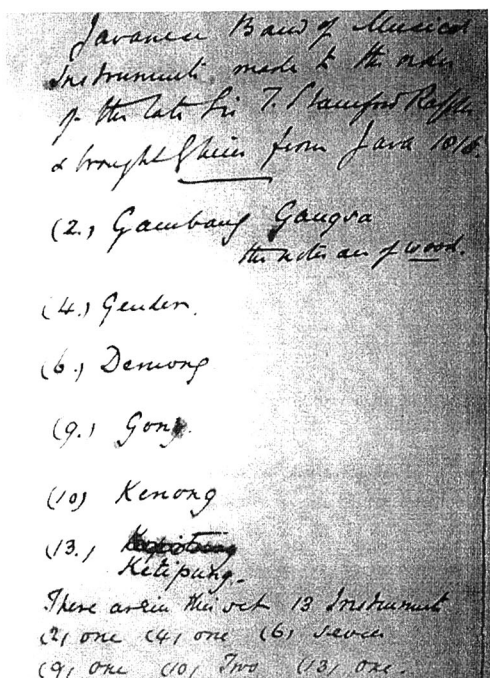 Javanese Band of Musical
Instruments, made to the order
of the late Sir T. Stamford Raffles
& brought by him from Java 1816.
(2.) Gambang Gangsa
the notes are of wood.
(4.) Gender.
(6.) Demong
(9.) Gong.
(10) Kenong
(13.)
Ketipung.
There are in this set 13 Instrument
(2) one (4) one (6) seven
(9) one (10) Two (13) one.